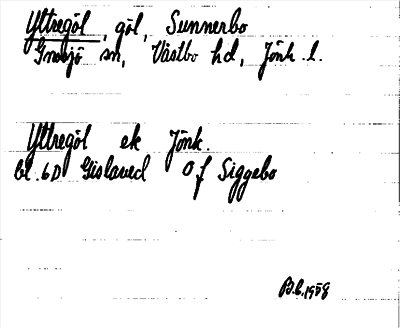 Yttregöl, göl, Sunnerbo
Gnosjö sn, Västbo hd, Jönk. l.
Yttregöl ek Jönk.
bl. 6D Gislaved O f Siggebo
B.L. 1958